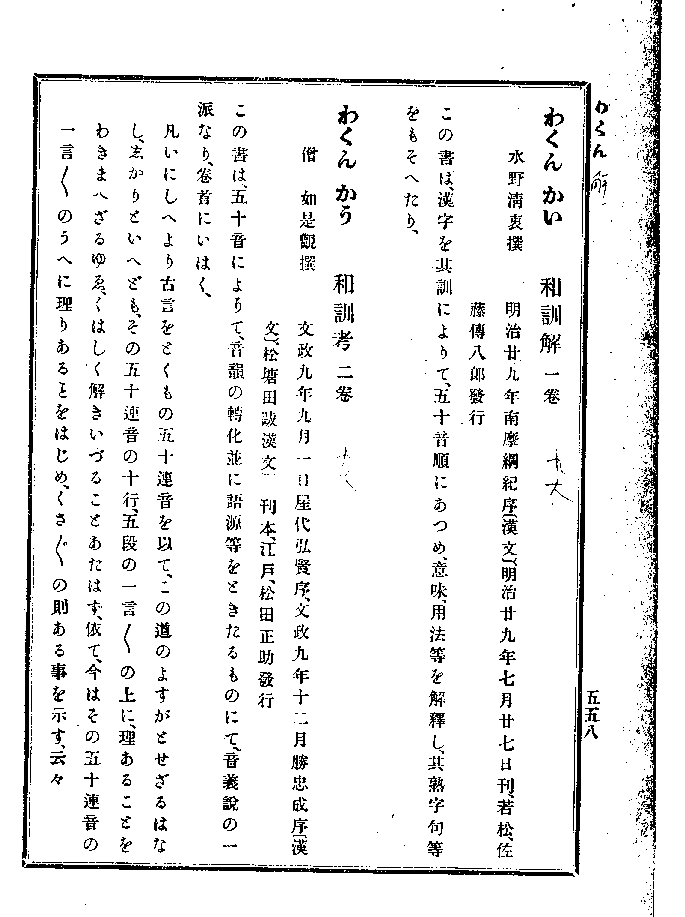 わくん 解
五五八
わくん かい 和訓解 一卷
水野淸衷撰 明治廿九年南摩綱紀序(漢文)、明治廿九年七月廿七日刊、若松、佐
藤傳八郎發行
この書は、漢字を其訓によりて、五十音順にあつめ、意味、用法等を解釋し、其熟字句等
をもそへたり、
わくん かう 和訓考 二卷
僧 如是觀撰 文政九年九月一日屋代弘賢序、文政九年十二月勝忠成序(漢
文)、松塘田跋漢文 刊本、江戶、松田正助發行
この書は、五十音によりて、音韻の轉化並に語源等をときたるものにて、音義說の一
派なり、卷首にいはく、
凡いにしへより古言をとくもの五十連音を以て、この道のよすがとせざるはな
し、ゑかりといへども、その五十連音の十行、五段の一言〱の上に、理あることを
わきまへざるゆゑ、くはしく解きいづることあたはず、依て、今はその五十連音の
一言〱のうへに理りあることをはじめ、くさ〲の則ある事を示す、云々